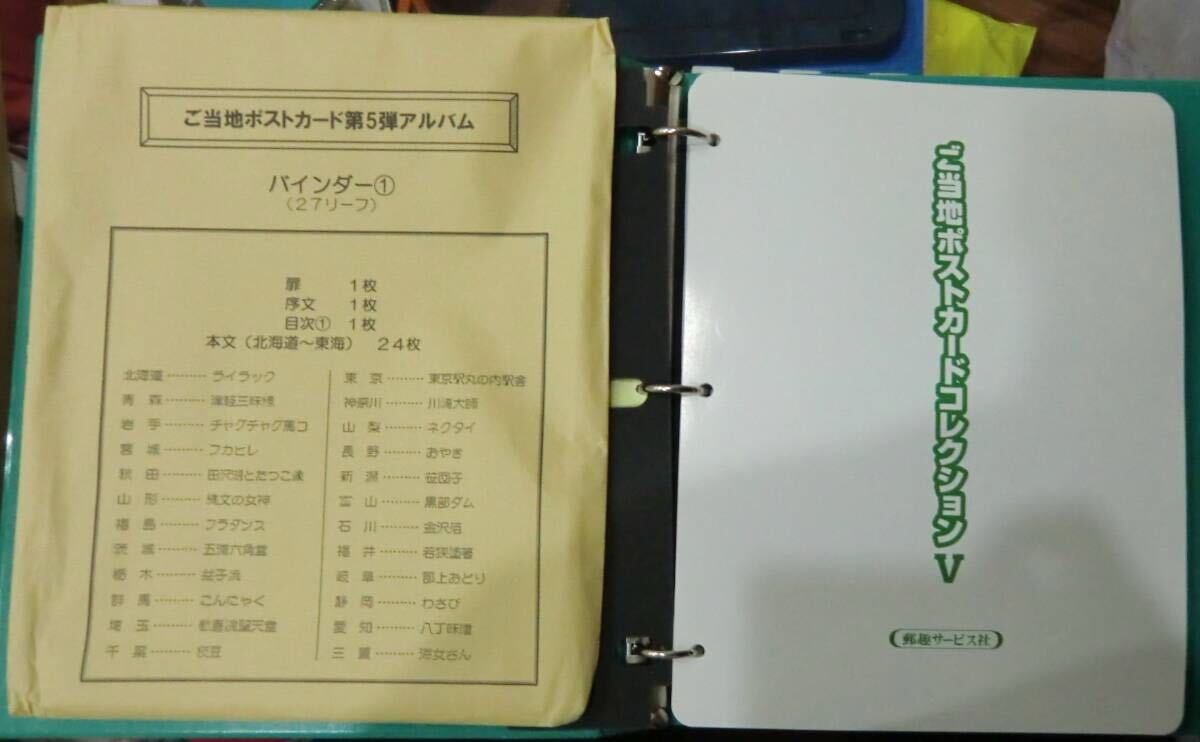 ご当地ポストカード第5弾アルバム
バインダー①
（27リーフ）
扉　1枚
序文　1枚
目次①　1枚
本文（北海道～東海）　24枚
北海道………ライラック
青　森………津軽三味線
岩　手………チャグチャグ馬コ
宮　城………フカヒレ
秋　田………田沢湖とたつこ像
山　形………縄文の女神
福　島………フラダンス
茨　城………五浦六角堂
栃　木………益子浜
群　馬………こんにゃく
埼　玉………歓喜院聖天堂
千　葉………枝豆
東　京………東京駅丸の内駅舎
神奈川………川崎大師
山　梨………ネクタイ
長　野………おやき
新　潟………笹団子
富　山………黒部ダム
石　川………金沢箔
福　井………若狭塗箸
岐　阜………郡上おどり
静　岡………わさび
愛　知………八丁味噌
三　重………海女さん
ご当地ポストカードコレクションⅤ
郵趣サービス社